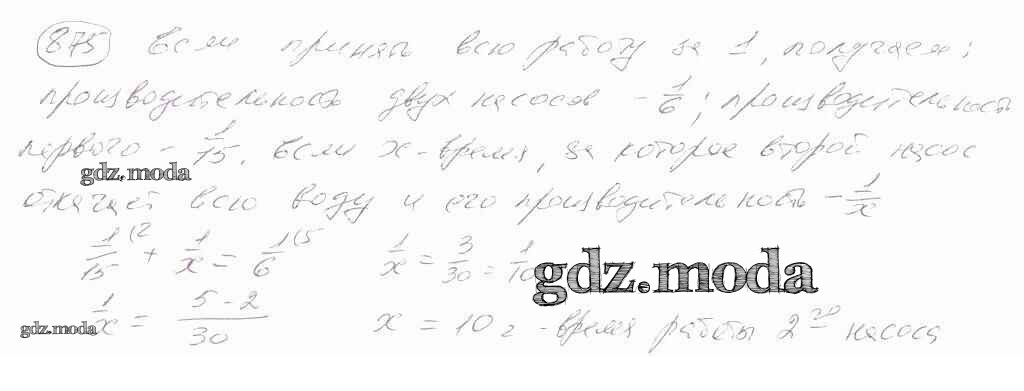 875 Если принять всю работу за 1, получаем:
производительность двух насосов - 1/6; производительность
первого - 1/15. Если x - время, за которое второй насос
gdz.moda
откачает всю воду и его производительность - 1/x
1/15 (2 + 1/x = 1/6 (5 1/x = 3/30 = 1/10
gdz.moda
1/x = 5 - 2/30 x = 10 г - время работы 2го насоса
gdz.moda